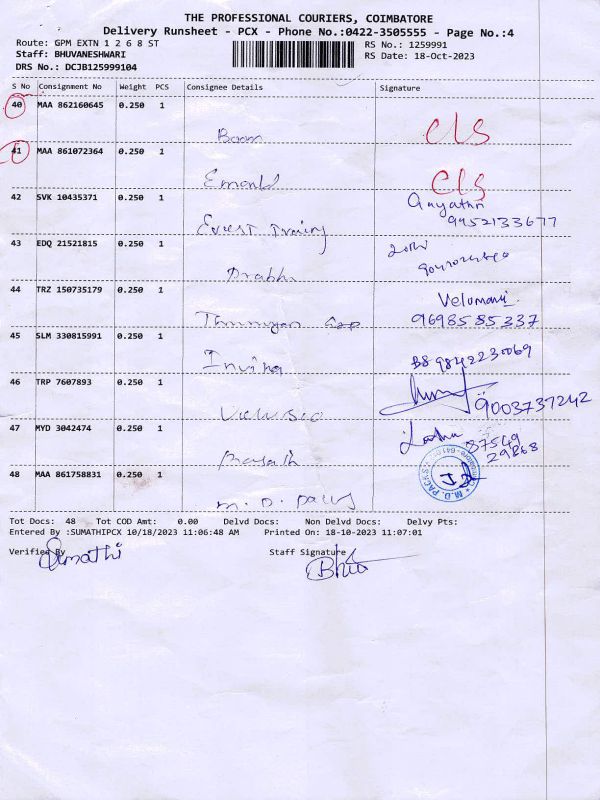 THE PROFESSIONAL COURIERS, COIMBATORE
Delivery Runsheet - PCX - Phone No.:0422-3505555 - Page No.:4
Route: GPM EXTN 1 2 6 8 ST
RS No.: 1259991
Staff: BHUVANESHWARI
RS Date: 18-Oct-2023
DRS No.: DCJB125999104
S No Consignment No Weight PCS Consignee Details Signature
40 MAA 862160645 0.250 1
CLS
41 MAA 861072364 0.250 1
CLS
42 SVK 10435371 0.250 1
Gayathri
9952133677
Everest Training
43 EDQ 21521815 0.250 1
Prabhu
44 TRZ 150735179 0.250 1
Velumani
9698585337
45 SLM 330815991 0.250 1
9842230069
46 TRP 7607893 0.250 1
9003737242
47 MYD 3042474 0.250 1
87549
29868
Prakash
48 MAA 861758831 0.250 1
M. D. Pally
Tot Docs: 48 Tot COD Amt: 0.00 Delvd Docs: Non Delvd Docs: Delvy Pts:
Entered By :SUMATHIPCX 10/18/2023 11:06:48 AM Printed On: 18-10-2023 11:07:01
Verified By Staff Signature
Sumathi